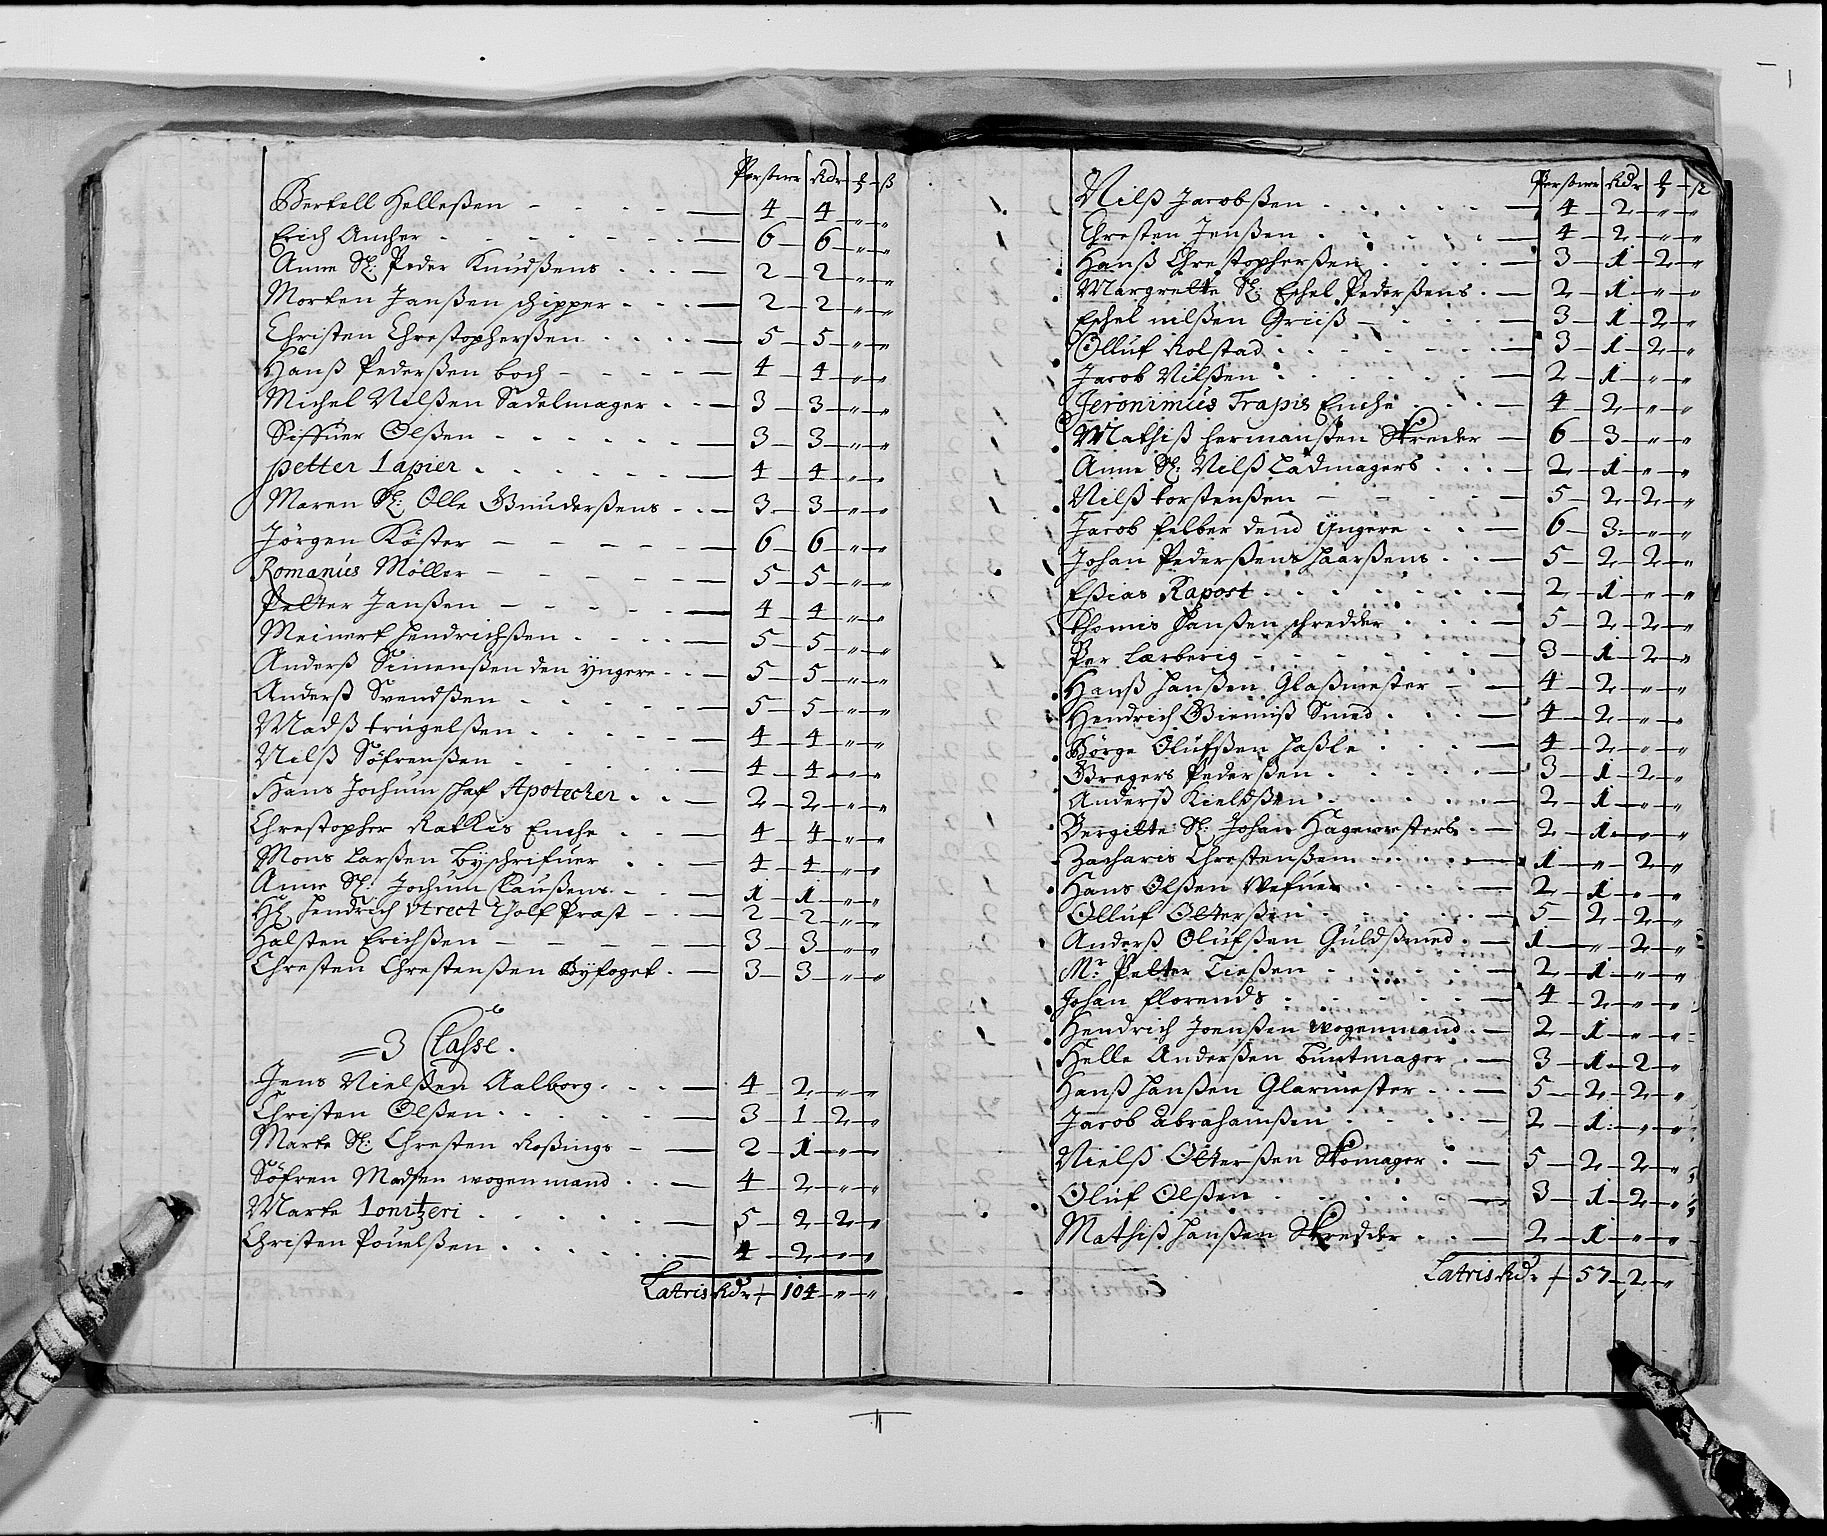 Personer Rdr ₰ ß
Bertell Helleßen - - - - 4 - 4 - „ - „
Erich Ancher - - - - 6 - 6 - „ - „
Anne Sl: Peder Knudßens . . . 2 - 2 - „ - „
Morten Janßen schipper . . . 2 - 2 - „ - „
Christen Chrestopherßen . . . . 5 - 5 - „ - „
Hanß Pederßen boch - - - - 4 - 4 - „ - „
Michel Nilßen Sadelmager . . 3 - 3 - „ - „
Siffuer Olßen - - - - - 3 - 3 - „ - „
petter lapier . . . . . 4 - 4 - „ - „
Maren Sl: Olle Gunderßens . . . 3 - 3 - „ - „
Jörgen Köster - - - - - 6 - 6 - „ - „
Romanus Möller - - - - - 5 - 5 - „ - „
Petter Janßen - - - - - 4 - 4 - „ - „
Meinert Hendrichßen . . . . 5 - 5 - „ - „
Anderß Simenßen den yngere . . . 5 - 5 - „ - „
Anderß Svendßen . . . . . 5 - 5 - „ - „
Madß trugelßen . . . . . 4 - 4 - „ - „
Nilß Söfrenßen - - - - - 4 - 4 - „ - „
Hans Jochum Apotecher . . . 2 - 2 - „ - „
Chrestopher Ratkis Enche . . . 4 - 4 - „ - „
Mons Larßen Byschrifuer . . . 4 - 4 - „ - „
Anne Sl: Jochum Claußens . - . 1 - 1 - „ - „
Hl Hendrich Vtrect Tholf Præst - - . 2 - 2 - „ - „
Halsten Erichßen - - - - - 3 - 3 - „ - „
Chresten Chrestenßen Byfoget . - 3 - 3 - „ - „
3 Classe.
Jens Nielßen Aalborg . . . - 4 - 2 - „ - „
Christen Olßen . . . . . 3 - 1 - 2 - „
Marte Sl: Chresten Roßings - - 2 - 1 - „ - „
Söfren Madsen wogenmand . . . 4 - 2 - „ - „
Marte lonitzeri . . . . . 5 - 2 - 2 - „
Christen Pouelßen . . . . . . 4 - 2 - „ - „
Latris Rdr 104 - „ - „
Personer Rdr ₰ ß
Nilß Jacobßen . . . . . 4 - 2 - „ - „
Chresten Jenßen . . . . . 4 - 2 - „ - „
Hanß Chrestopherßen . . . . 3 - 1 - 2 - „
Margrette Sl: Eschel Pederßens . - 2 - 1 - „ - „
Eschel nilßen Griiß - . . . 3 - 1 - 2 - „
Olluf Rolstad . . . . . . 3 - 1 - 2 - „
Jacob Nilßen . . . . . . 2 - 1 - „ - „
Jeronimus Trapis Enche . . . 4 - 2 - „ - „
Mathiß hermanßen Skreder - 6 - 3 - „ - „
Anne Sl: Nilß Ladmagers . . . 2 - 1 - „ - „
Nilß torstenßen - - - . . 5 - 2 - 2 - „
Jacob felber dend yngere . . . 6 - 3 - „ - „
Johan Pederßens Haarßens . . . 5 - 2 - 2 - „
Eßias Rapost . . . . . . 2 - 1 - „ - „
thomis Hanßen schredder . . . . 5 - 2 - 2 - „
Per Lærberig - . . . . . 3 - 1 - 2 - „
Hanß Hanßen Glaßmester - - 4 - 2 - „ - „
Hendrich Smed . . . . 4 - 2 - „ - „
Börge Olufßen Haßle . . . . 4 - 2 - „ - „
Gregers Pederßen . . . . . 3 - 1 - 2 - „
Anderß Kieldßen . . . . . 2 - 1 - „ - „
Bergitte Sl: Johan Hagemesters . - 2 - 1 - „ - „
Zacharis Chrestenßen . . . . . 1 - „ - 2 - „
Hans Olßen Wefuer . . . . . 2 - 1 - „ - „
Olluf Otterßen . . . . . . 5 - 2 - 2 - „
Anderß Olufßen Guldßmed . - 1 - „ - 2 - „
Mr. Petter Tießen . . . . . 2 - 1 - „ - „
Johan florends . . . . . . 4 - 2 - „ - „
Hendrich Joenßen wogenmand . - 2 - 1 - „ - „
Helle Anderßen Buntmager . - 3 - 1 - 2 - „
Hanß Hanßen Glarmester . . . 5 - 2 - 2 - „
Jacob Abrahamßen . . . . . 2 - 1 - „ - „
Nielß Otterßen Skomager . - 5 - 2 - 2 - „
Oluf Olßen . . . . . . 3 - 1 - 2 - „
Mathiß Hanßen Skredder . . - 2 - 1 - „ - „
Latris Rdr 57 - 2 - „